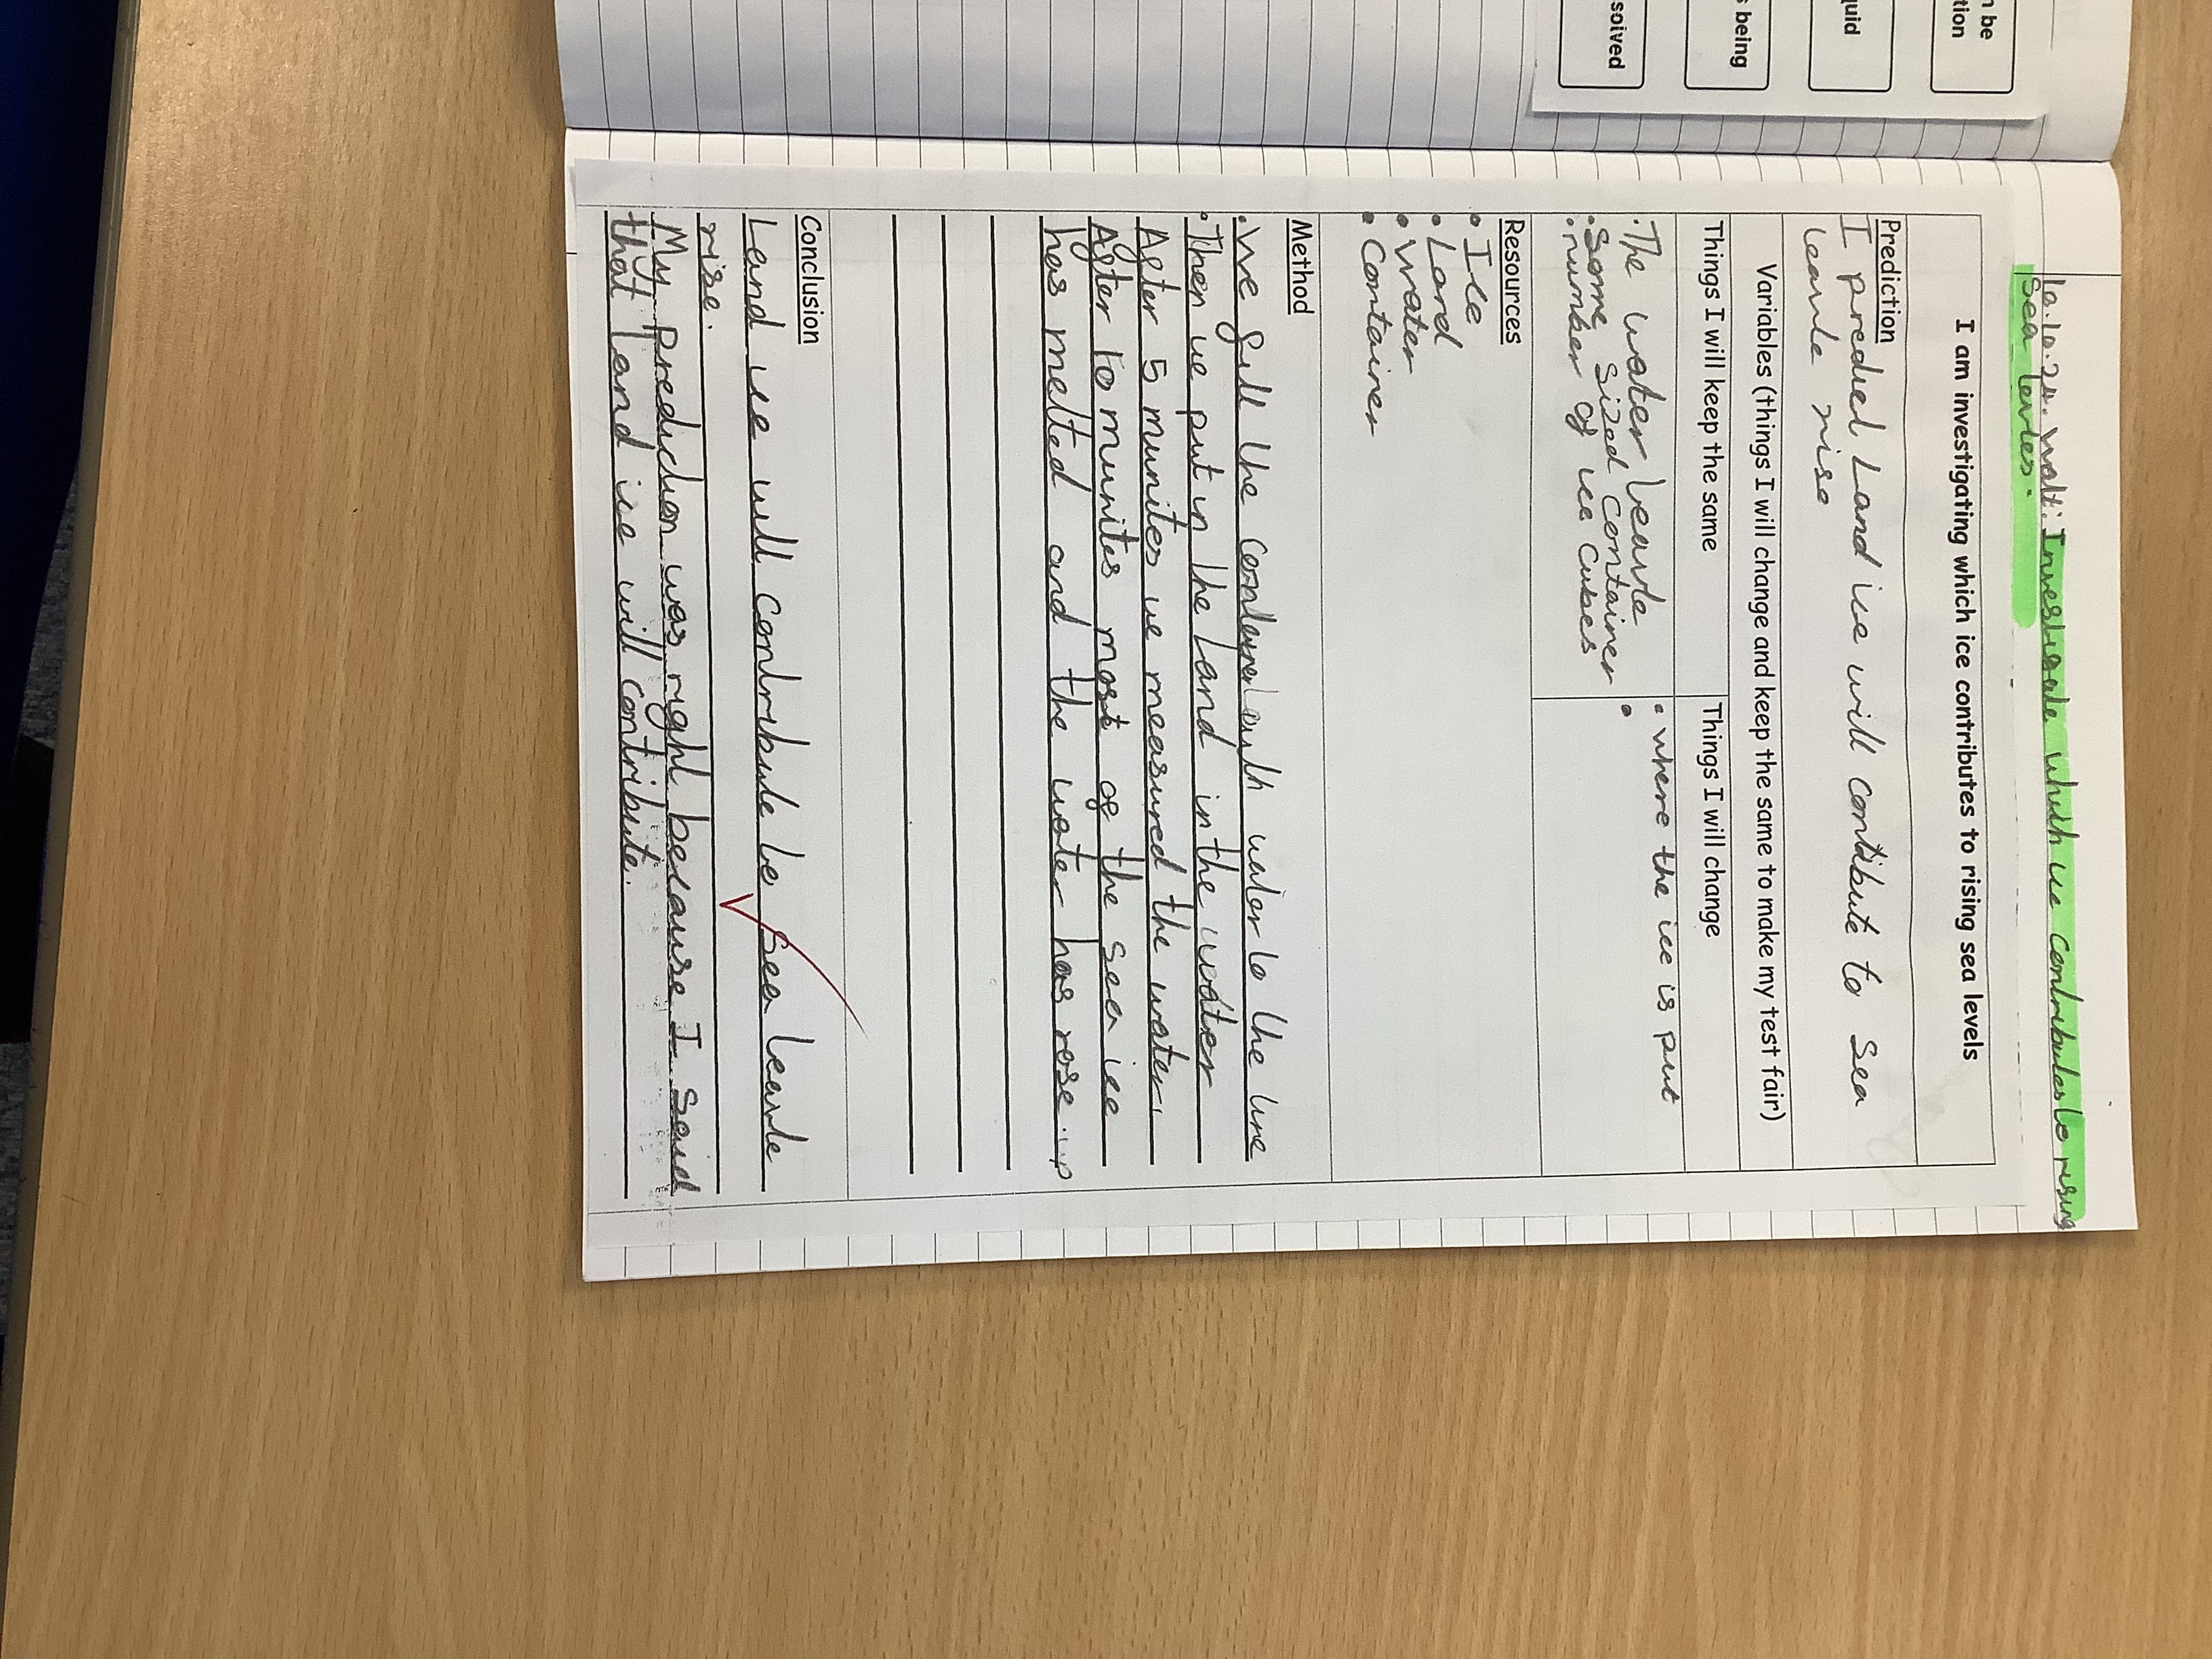 10.10.24. Walt: Investigate which ice contributes to rising
Sea levles.
I am investigating which ice contributes to rising sea levels
Prediction
I predict Land ice will contibute to Sea
leavle rise
Variables (things I will change and keep the same to make my test fair)
Things I will keep the same
Things I will change
• The water leavle
• Same sized container
• number of ice cubes
• where the ice is put
•
Resources
• Ice
• Land
• Water
• Container
Method
• We fill the container with water to the line
• Then we put in the Land in the water
After 5 munites we measured the water.
After 10 munites most of the sea ice
has melted and the water has rose up
Conclusion
Land ice will contribute to Sea leavle
rise.
My prediction was right because I Said
that land ice will contribute.
n be
tion
quid
s being
solved